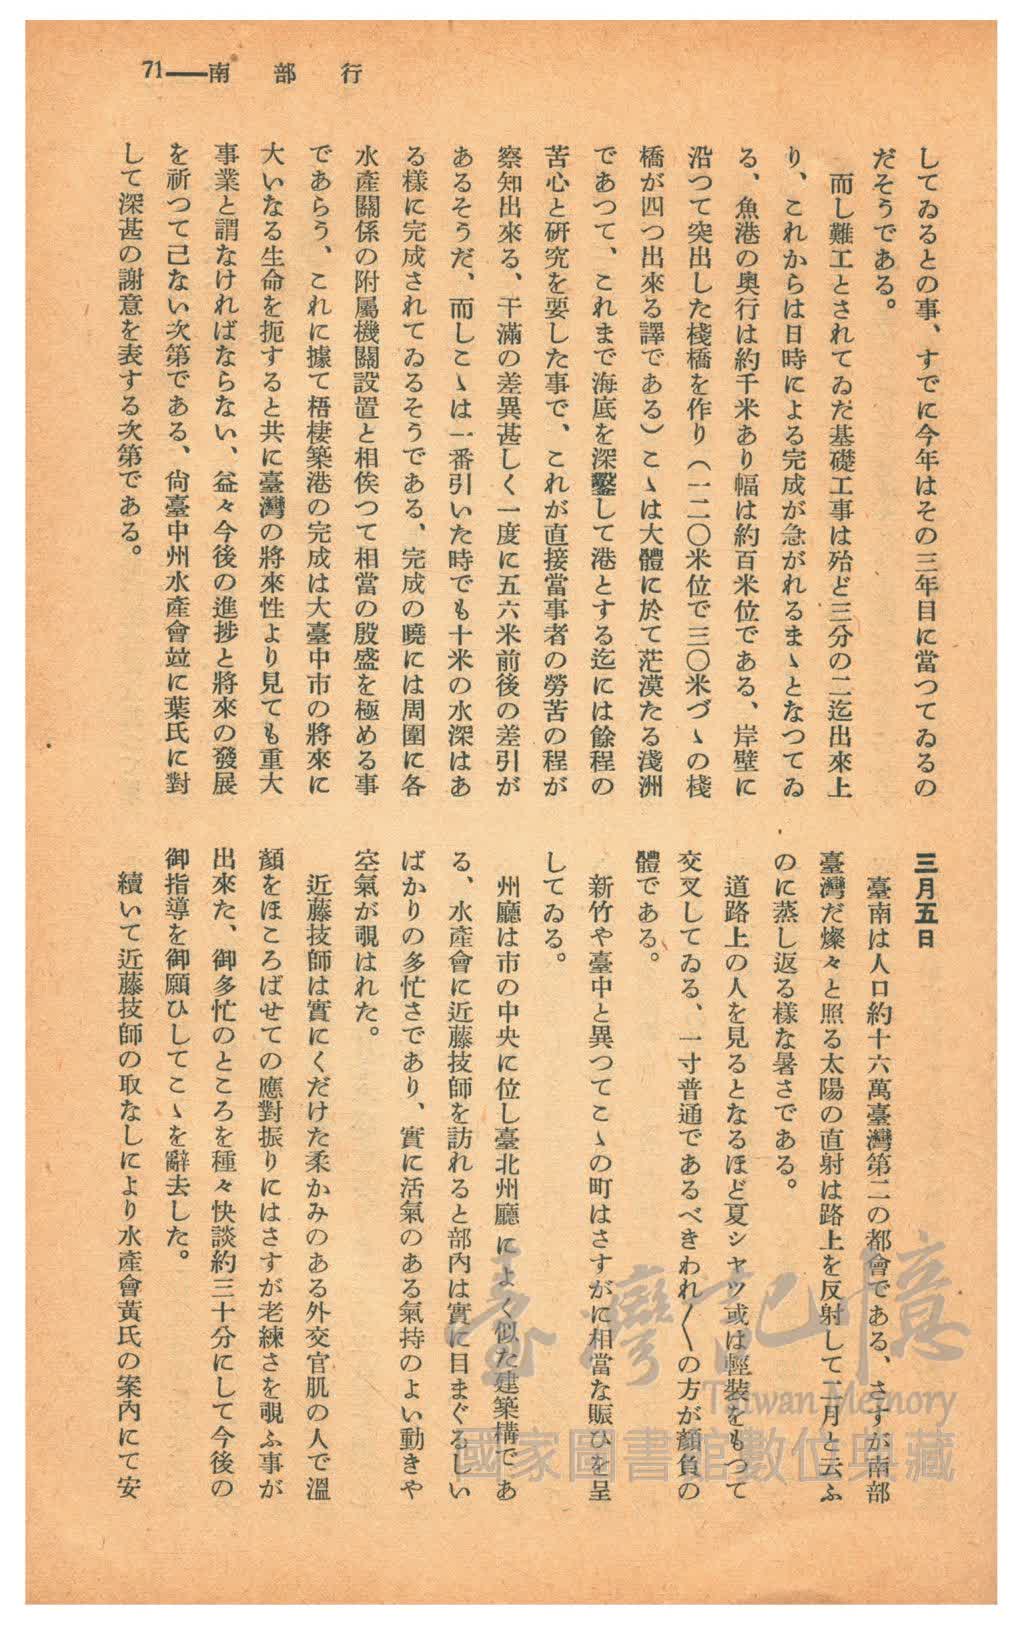 71——南部行
してゐるとの事、すでに今年はその三年目に當つてゐるの
だそうである。
而し難工とされてゐだ基礎工事は殆ど三分の二迄出來上
り、これからは日時による完成が急がれるまゝとなつてゐ
る、魚港の奥行は約千米あり幅は約百米位である、岸壁に
沿つて突出した棧橋を作り（一二〇米位で三〇米づゝの棧
橋が四つ出來る譯である）こゝは大體に於て茫漠たる淺洲
であつて、これまで海底を深鑿して港とする迄には餘程の
苦心と研究を要した事で、これが直接當事者の勞苦の程が
察知出來る、干滿の差異甚しく一度に五六米前後の差引が
あるそうだ、而しこゝは一番引いた時でも十米の水深はあ
る樣に完成されてゐるそうである、完成の曉には周圍に各
水產關係の附屬機關設置と相俟つて相當の殷盛を極める事
であらう、これに據て梧棲築港の完成は大臺中市の將來に
大いなる生命を扼すると共に臺灣の將來性より見ても重大
事業と謂なければならない、益々今後の進捗と將來の發展
を祈つて己ない次第である、尙臺中州水產會竝に葉氏に對
して深甚の謝意を表する次第である。
三月五日
臺南は人口約十六萬臺灣第二の都會である、さすが南部
臺灣だ燦々と照る太陽の直射は路上を反射して二月と云ふ
のに蒸し返る樣な暑さである。
道路上の人を見るとなるほど夏シャツ或は輕裝をもつて
交叉してゐる、一寸普通であるべきわれ〱の方が顏負の
體である。
新竹や臺中と異つてこゝの町はさすがに相當な賑ひを呈
してゐる。
州廳は市の中央に位し臺北州廳によく似た建築構であ
る、水產會に近藤技師を訪れると部內は實に目まぐるしい
ばかりの多忙さであり、實に活氣のある氣持のよい動きや
空氣が覗はれた。
近藤技師は實にくだけた柔かみのある外交官肌の人で溫
顏をほころばせての應對振りにはさすが老練さを覗ふ事が
出來た、御多忙のところを種々快談約三十分にして今後の
御指導を御願ひしてこゝを辭去した。
續いて近藤技師の取なしにより水產會黃氏の案內にて安
臺灣記憶
Taiwan Memory
國家圖書館數位典藏